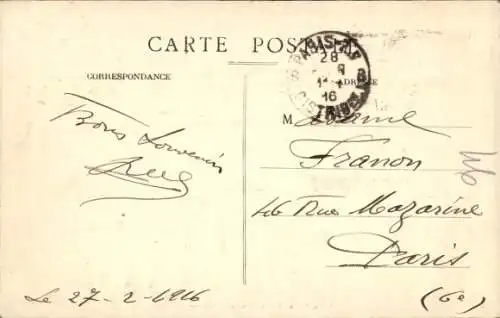 CARTE POSTALE
CORRESPONDANCE
ADRESSE
PARIS
28
16
DISTRIBUTION
Bons Souvenirs
Madame
Franon
46 Rue Mazarine
Paris
(6e)
Le 27-2-1916